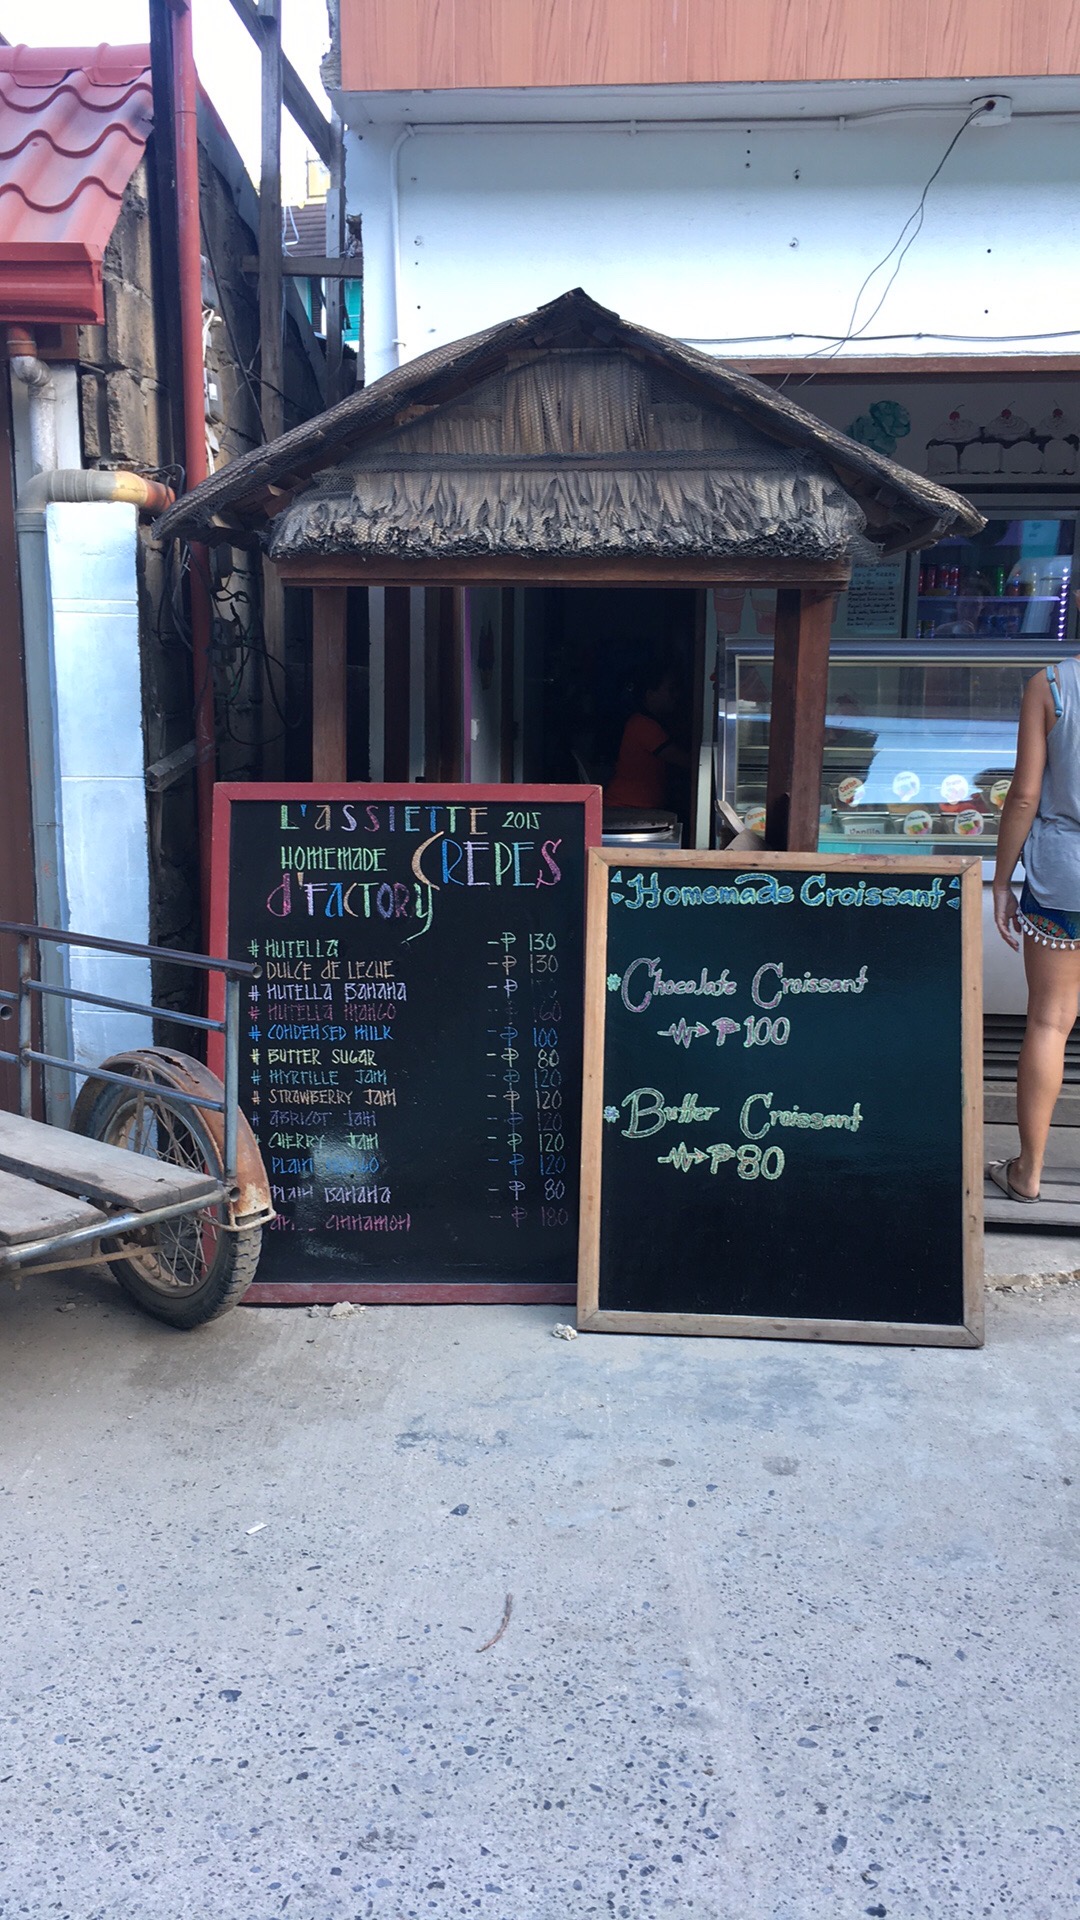 L'ASSIETTE 2015
HOMEMADE CREPES
d'FACTORY
# NUTELLA - ₱ 130
# DULCE DE LECHE - ₱ 130
# NUTELLA BANANA - ₱
# NUTELLA MANGO - ₱ 160
# CONDENSED MILK - ₱ 100
# BUTTER SUGAR - ₱ 80
# MYRTILLE JAM - ₱ 120
# STRAWBERRY JAM - ₱ 120
# ABRICOT JAM - ₱ 120
# CHERRY JAM - ₱ 120
PLAIN - ₱ 120
PLAIN BANANA - ₱ 80
CINNAMON - ₱ 180
Homemade Croissant
# Chocolate Croissant
₱ 100
# Butter Croissant
₱ 80
Vanilla